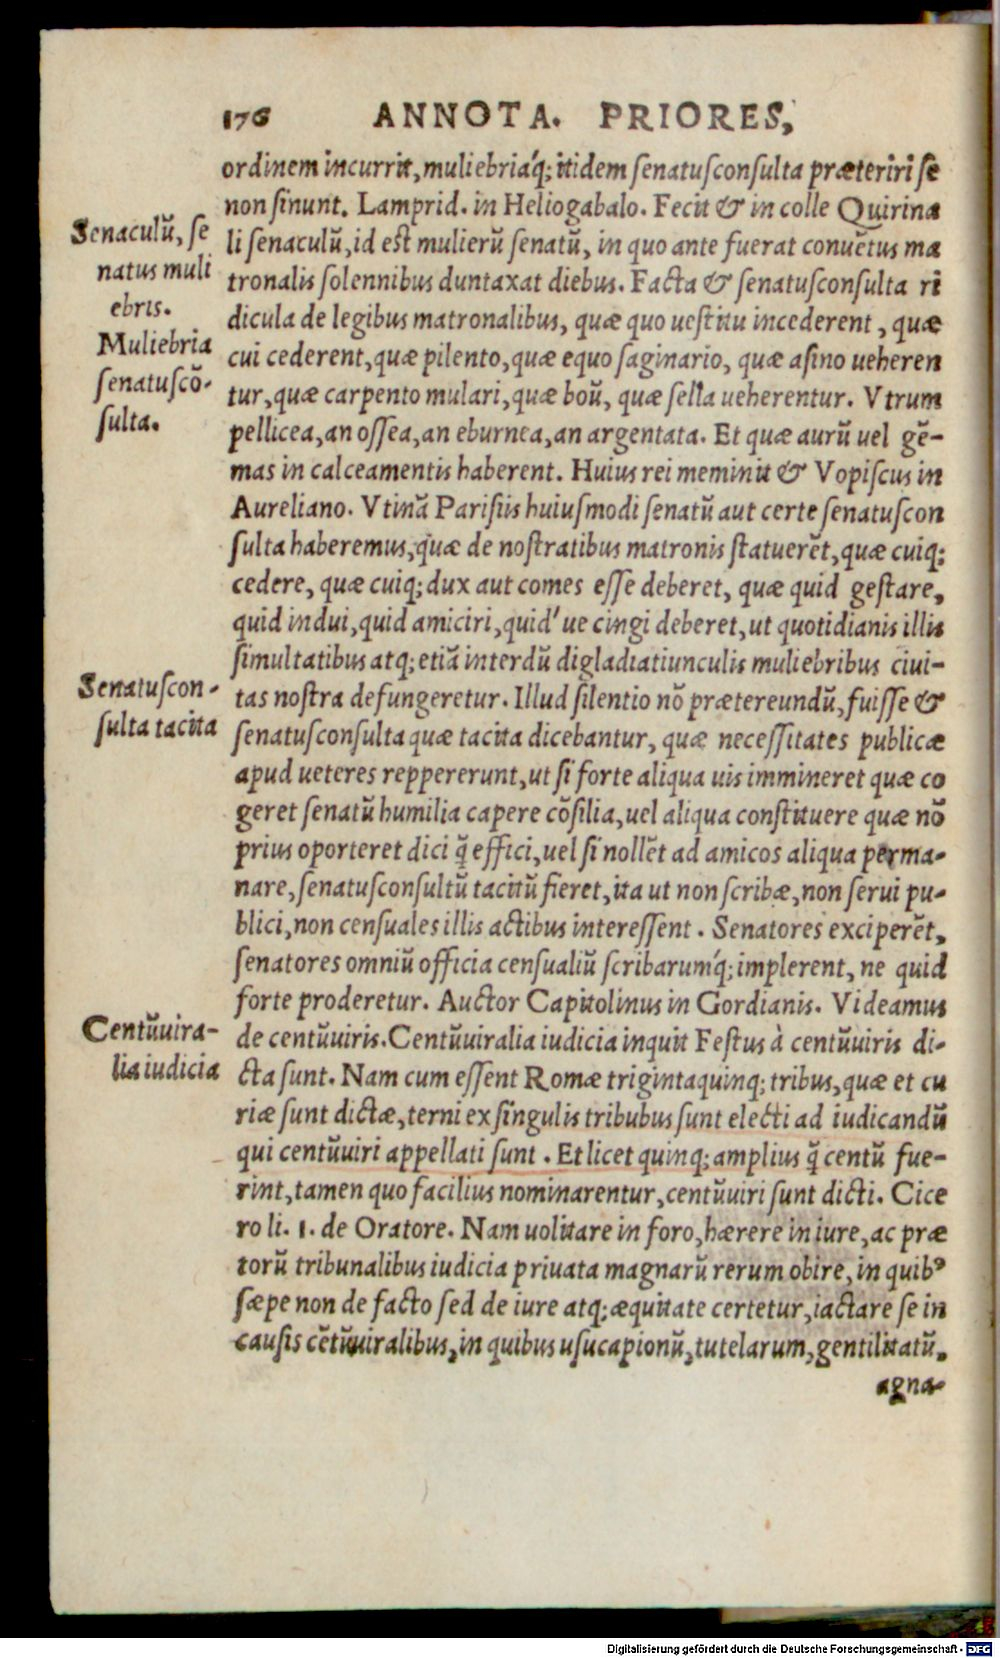 176 ANNOTA. PRIORES,
ordinem incurrit, muliebriáq; itidem senatusconsulta præteriri se
non sinunt. Lamprid. in Heliogabalo. Fecit & in colle Quirina
li senaculũ, id est mulierũ senatũ, in quo ante fuerat conuẽtus ma
tronalis solennibus duntaxat diebus. Facta & senatusconsulta ri
dicula de legibus matronalibus, quæ quo uestitu incederent, quæ
cui cederent, quæ pilento, quæ equo saginario, quæ asino ueheren
tur, quæ carpento mulari, quæ boũ, quæ sella ueherentur. Vtrum
pellicea, an ossea, an eburnea, an argentata. Et quæ aurũ uel gẽ-
mas in calceamentis haberent. Huius rei meminit & Vopiscus in
Aureliano. Vtinã Parisiis huiusmodi senatũ aut certe senatuscon
sulta haberemus, quæ de nostratibus matronis statuerẽt, quæ cuiq;
cedere, quæ cuiq; dux aut comes esse deberet, quæ quid gestare,
quid indui, quid amiciri, quid' ue cingi deberet, ut quotidianis illis
simultatibus atq; etiã interdũ digladiatiunculis muliebribus ciui-
tas nostra defungeretur. Illud silentio nõ prætereundũ, fuisse &
senatusconsulta quæ tacita dicebantur, quæ necessitates publicæ
apud ueteres reppererunt, ut si forte aliqua uis immineret quæ co
geret senatũ humilia capere cõsilia, uel aliqua constituere quæ nõ
prius oporteret dici q̃ effici, uel si nollẽt ad amicos aliqua perma-
nare, senatusconsultũ tacitũ fieret, ita ut non scribæ, non serui pu-
blici, non censuales illis actibus interessent. Senatores exciperẽt,
senatores omniũ officia censualiũ scribarumq́; implerent, ne quid
forte proderetur. Auctor Capitolinus in Gordianis. Videamus
de centũuiris. Centũuiralia iudicia inquit Festus à centũuiris di-
cta sunt. Nam cum essent Romæ trigintaquinq; tribus, quæ et cu
riæ sunt dictæ, terni ex singulis tribubus sunt electi ad iudicandũ
qui centũuiri appellati sunt. Et licet quinq; amplius q̃ centũ fue-
rint, tamen quo facilius nominarentur, centũuiri sunt dicti. Cice
ro li. 1. de Oratore. Nam uolitare in foro, hærere in iure, ac præ
torũ tribunalibus iudicia priuata magnarũ rerum obire, in quibꝰ
sæpe non de facto sed de iure atq; æquitate certetur, iactare se in
causis cẽtũuiralibus, in quibus usucapionũ, tutelarum, gentilitatũ,
agna-
Senaculũ, se
natus muli
ebris.
Muliebria
senatuscõ-
sulta.
Senatuscon-
sulta tacita
Centũuira-
lia iudicia
Digitalisierung gefördert durch die Deutsche Forschungsgemeinschaft - DFG